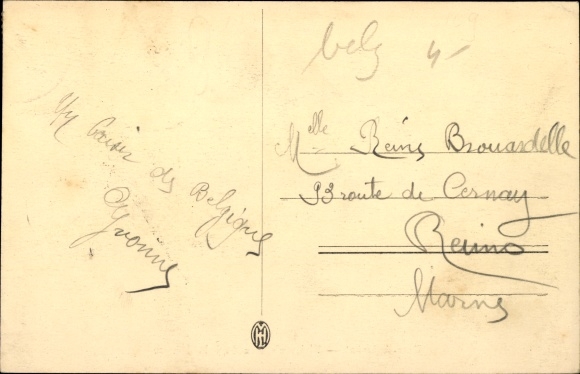 Belg 4-
Un baiser de Belgique
Yvonne
Melle Reine Brouardelle
93 route de Cernay
Reims
Marne